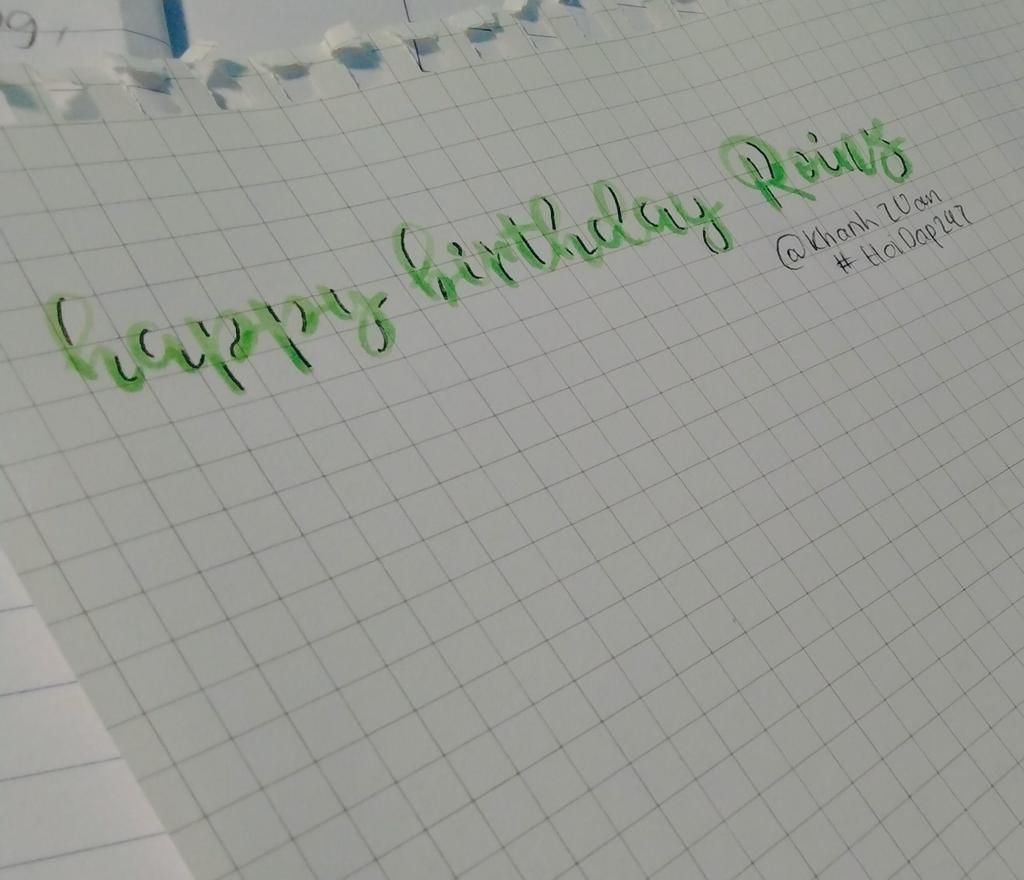 happy birthday Roins
@Khanh7Uan
# HoiDap247